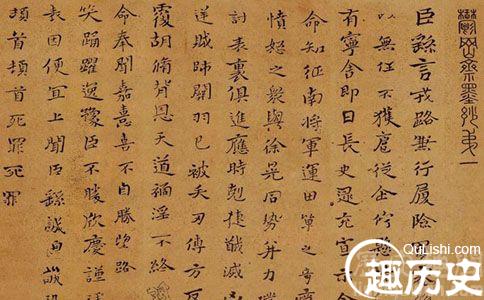 鬱岡齋墨妙第一
臣繇言戎路兼行履險
以無任不獲扈從企佇懸
有寧舍即日長史逯充宣示
命知征南將軍運田單之奇
憤怒之衆與徐晃同勢并力
討表裏俱進應時剋捷馘滅
逆賊帥關羽已被矢刃傅方反
覆胡脩背恩天道禍淫不終
命奉聞嘉憙喜不自勝望路
笑踴躍逸豫臣不勝欣慶謹
表因便宜上聞臣繇誠惶誠
頓首頓首死罪死罪
QuLiShi.com
趣历史